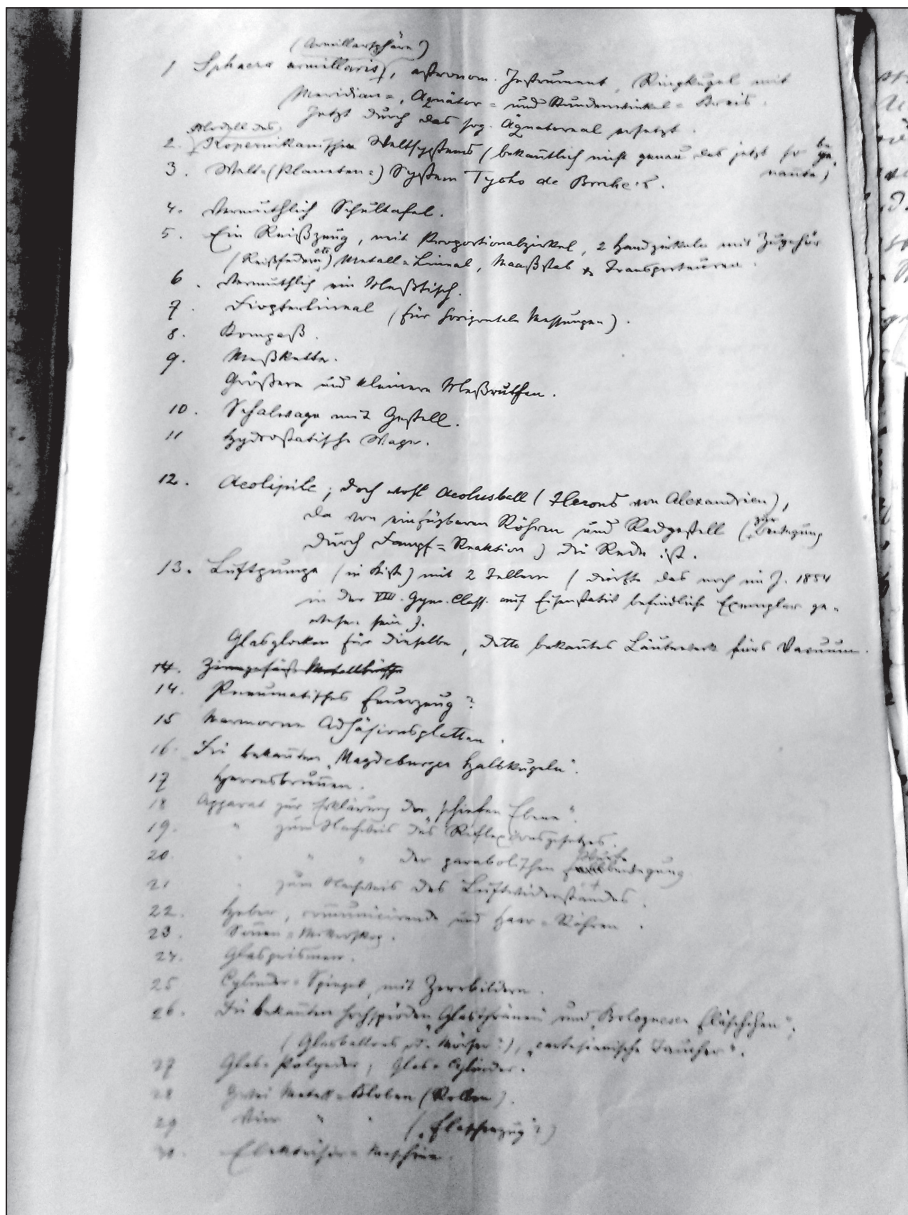 (Armillarsphäre)
1 Sphaera armillaris, astronom. Instrument, Ringkugel mit
Meridian=, Äquator= und Stundenwinkel=Kreis.
Jetzt durch das sog. Äquatoreal ersetzt.
Modell des
2. Kopernikanischen Weltsystems (bekanntlich nicht genau das jetzt so be
nannte)
3. Welt=(Planeten=) System Tycho de Brahe's.
4. Vermuthlich Schultafel.
5. Ein Reißzeug, mit Proportionalzirkel, 2 Handzirkeln mit Zugehör
(Reißfedern etc) Metall=Lineal, Maaßstab & Transporteuren.
6. Vermuthlich ein Meßtisch.
7. Diopterlineal (für horizontale Messungen).
8. Kompaß.
9. Meßkette.
Größere und kleinere Meßruthen.
10. Schalwage mit Gestell.
11 Hydrostatische Wage.
12. Aeolipile; doch wohl Aeolusball (Herons von Alexandrien),
da von einfügbaren Röhren und Radgestell (zur Bewegung
durch Dampf=Reaktion) die Rede ist.
13. Luftpumpe (in Kiste) mit 2 Tellern (dürfte das noch im J. 1854
in der VIII. Gym. Class. auf befindliche Exemplar ge=
wesen sein).
Glasglocken für dieselbe, detto bekanntes Läutewerk fürs Vacuum.
14.
14. Pneumatisches Feuerzeug?
15 Marmorne Adhäsionsplatten.
16. Die bekannten „Magdeburger Halbkugeln".
17 Heronsbrunnen.
18 Apparat zur Erklärung der „schiefen Ebene".
19. " zum Nachweis des Reflexionsgesetzes.
20. " " " der parabolischen Wurfbewegung
21 " zum Nachweis des Luftwiderstandes.
22. Heber, communicirende und Haar=Röhren.
23. Sonnen=Mikroskop.
24. Glasprismen.
25 Cylinder=Spiegel, mit Zerrbildern.
26. Die bekannten Glasthränen und „Bologneser Fläschchen",
(Glasballons), „cartesianische Taucher".
27 Glas=Polyeder, Glas=Cylinder.
28 Zwei Metall=Kloben (Rollen).
29 Vier " " („Flaschenzug"?)
30. Elektrisir=Maschine.